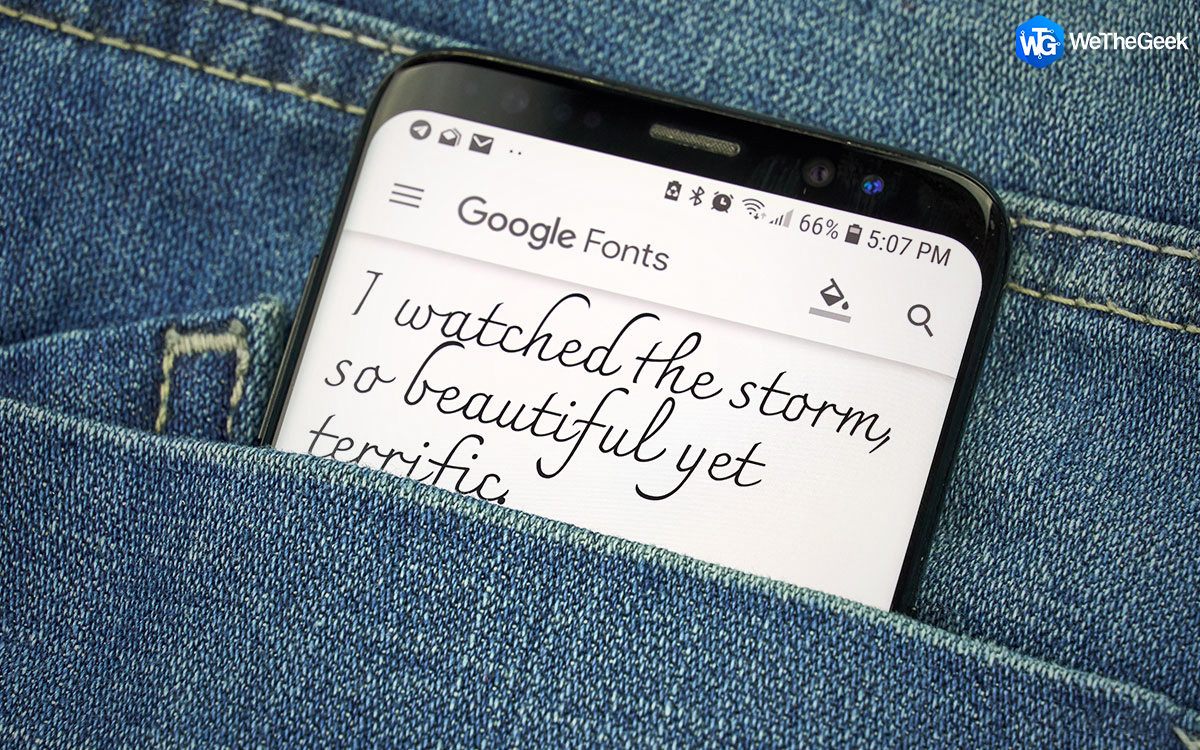 WTG WeTheGeek
66% 5:07 PM
Google Fonts
I watched the storm,
so beautiful yet
terrific.